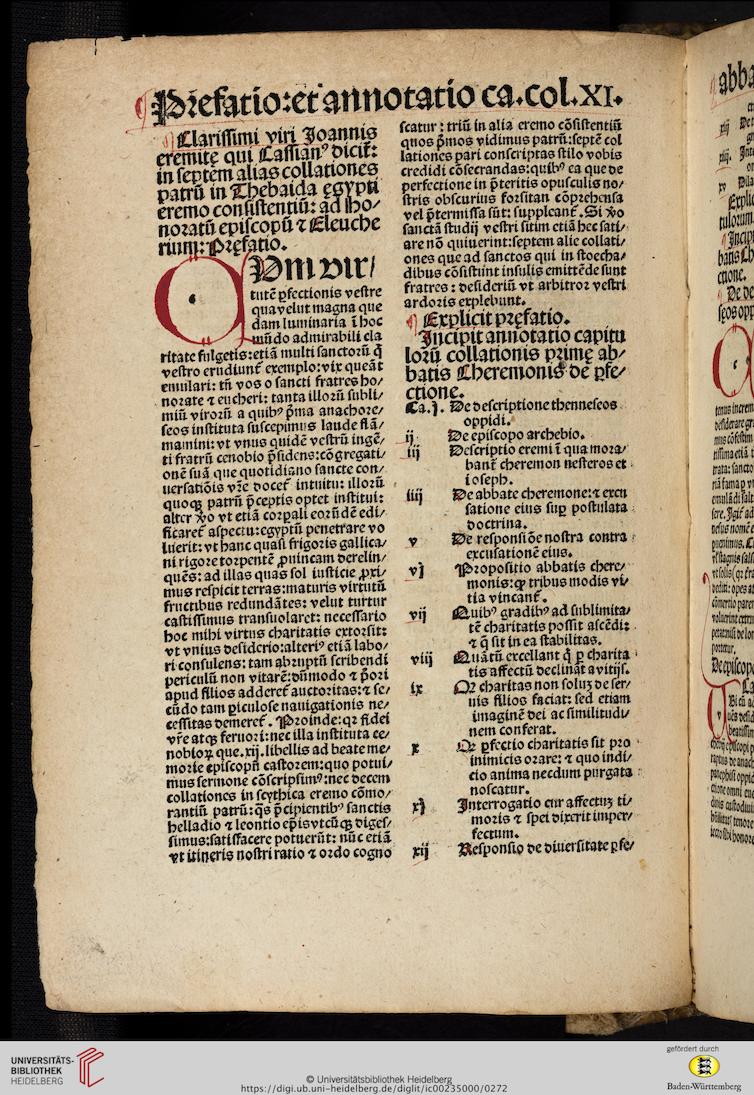 Prefatio:et annotatio ca.col.XI.
Clarissimi viri Joannis
eremitę qui Cassianꝰ dicit̄:
in septem alias collationes
patrū in Thebaida ęgypti
eremo consistentiū: ad Ho/
noratū episcopū ⁊ Eleuche
rium: Pręfatio.
OMni vir/
tutē ꝑfectionis vestre
qua velut magna que
dam luminaria ī hoc
mūdo admirabili cla
ritate fulgetis: etiā multi sanctorū q̄
vestro erudiunt̄ exemplo: vix queāt
emulari: tn̄ vos o sancti fratres ho/
norate ⁊ eucheri: tanta illorū subli/
miū virorū a quibꝰ pͥma anachore/
seos instituta suscepimus laude flā/
mamini: vt vnus quidē vestrū ingē/
ti fratrū cenobio p̄sidens: cōgregati/
onē suā que quotidiano sancte con/
uersatiōis vr̄e docet̄ intuitu: illorū
quoqꝫ patrū p̄ceptis optet institui:
alter v̓o vt etiā corꝑali eorūdē edi/
ficaret̄ aspectu: egyptū penetrare vo
luerit: vt hanc quasi frigoris gallica/
ni rigore torpentē ꝓuinciam derelin/
quēs: ad illas quas sol iusticie ꝓxi/
mus respicit terras: maturis virtutū
fructibus redundātes: velut turtur
castissimus transuolaret: necessario
hoc mihi virtus charitatis extorsit:
vt vnius desiderio: alteriꝰ etiā labo/
ri consulens: tam abruptū scribendi
periculū non vitarē: dūmodo ⁊ pͥori
apud filios adderet̄ auctoritas: ⁊ se/
cūdo tam ꝑiculose nauigationis ne/
cessitas demeret̄. Proinde: qꝛ fidei
vr̄e atqꝫ feruori: nec illa instituta ce/
nobioꝝ que .xij. libellis ad beate me/
morie episcopū castorem: quo potui/
mus sermone cōscripsimꝰ: nec decem
collationes in scythica eremo cōmo/
rantiū patrū: q̄s p̄cipientibꝰ sanctis
helladio ⁊ leontio ep̄is vtcūqꝫ diges/
simus: satisfacere potuerūt: nūc etiā
vt itineris nostri ratio ⁊ ordo cogno
scatur: triū in alia eremo cōsistentiū
quos pͥmos vidimus patrū: septē col
lationes pari conscriptas stilo vobis
credidi cōsecrandas: quibꝰ ea que de
perfectione in p̄teritis opusculis no/
stris obscurius forsitan cōprehensa
vel p̄termissa sūt: suppleant̄. Si v̓o
sanctā studij vestri sitim etiā hec sati/
are nō quiuerint: septem alie collati/
ones que ad sanctos qui in stoecha/
dibus cōsistunt insulis emittēde sunt
fratres: desideriū vt arbitror vestri
ardoris explebunt.
Explicit pręfatio.
Incipit annotatio capitu
lorū collationis primę ab/
batis Cheremonis de ꝑfe/
ctione.
Ca.j. De descriptione thenneseos
oppidi.
ij De episcopo archebio.
iij Descriptio eremi ī qua mora/
bant̄ cheremon nesteros et
ioseph.
iiij De abbate cheremone: ⁊ excu
satione eius suꝑ postulata
doctrina.
v De responsiōe nostra contra
excusationē eius.
vj Propositio abbatis chere/
monis: ꝙ tribus modis vi/
tia vincant̄.
vij Quibꝰ gradibꝰ ad sublimita/
tē charitatis possit ascēdi:
⁊ q̄ sit in ea stabilitas.
viij Quātū excellant q̄ ꝑ charita
tis affectū declināt a vitijs.
ix Qꝛ charitas non soluꝫ de ser/
uis filios faciat: sed etiam
imaginē dei ac similitudi/
nem conferat.
x Qꝛ ꝑfectio charitatis sit pro
inimicis orare: ⁊ quo indi/
cio anima necdum purgata
noscatur.
xj Interrogatio cur affectuꝫ ti/
moris ⁊ spei dixerit imper/
fectum.
xij Responsio de diuersitate ꝑfe/
UNIVERSITÄTS-
BIBLIOTHEK
HEIDELBERG
© Universitätsbibliothek Heidelberg
https://digi.ub.uni-heidelberg.de/diglit/ic00235000/0272
gefördert durch
Baden-Württemberg